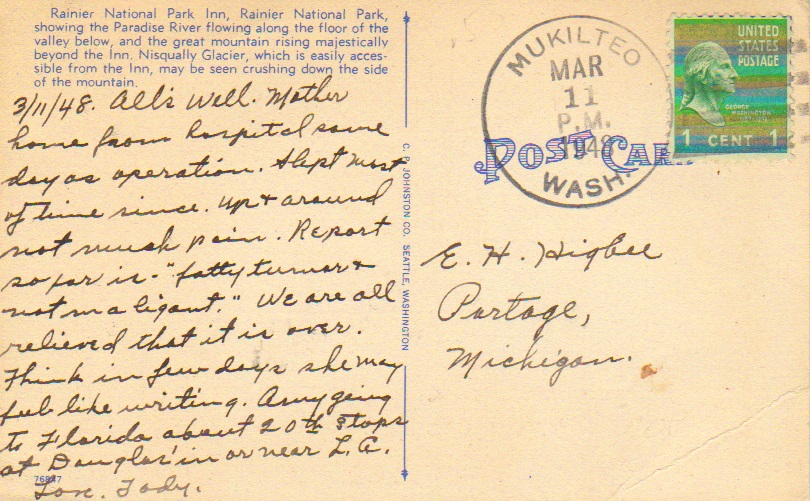 Rainier National Park Inn, Rainier National Park,
showing the Paradise River flowing along the floor of the
valley below, and the great mountain rising majestically
beyond the Inn. Nisqually Glacier, which is easily acces-
sible from the Inn, may be seen crushing down the side
of the mountain.
3/11/48. All's well. Mother
home from hospital same
day as operation. Slept most
of time since. Up & around
not much pain. Report
so far is - "fatty tumor &
not malignant." We are all
relieved that it is over.
Think in few days she may
feel like writing. Amy going
to Florida about 20th stops
at Douglas' in or near L.A.
76847
C. P. JOHNSTON CO. SEATTLE, WASHINGTON
MUKILTEO
MAR
11
P.M.
1948
WASH.
POST CARD
UNITED
STATES
POSTAGE
GEORGE
WASHINGTON
1 CENT 1
E. H. Higbee
Portage,
Michigan.